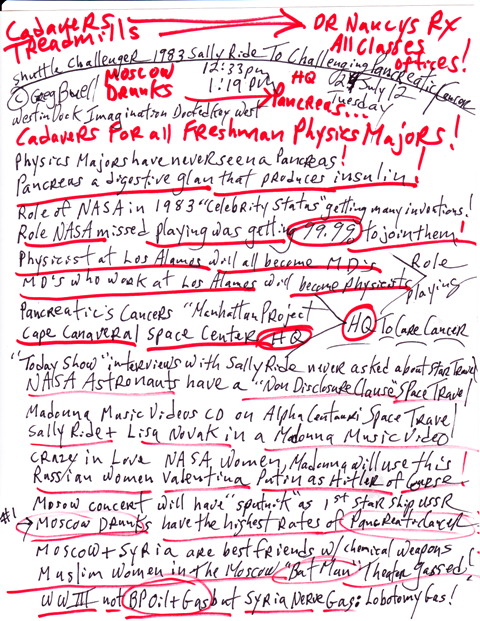 Cadavers
Treadmills
DR Nancys RX
All Classes
offices!
Shuttle Challenger 1983 Sally Ride To Challenging Pancreatic Cancer
© Greg Buell
Moscow
Drunks
12:33pm
1:19 PM
HQ
24 July 12
Tuesday
Pancreas...
Westin Dock Imagination Docked Key West
Cadavers For all Freshman Physics Majors!
Physics Majors have never seen a Pancreas!
Pancreas a digestive glan that produces insulin!
Role of NASA in 1983 "Celebrity Status" getting many invotions!
Role NASA missed playing was getting 99.9% to join them!
Physicist at Los Alamos will all become MD's
MD's who work at Los Alamos will become physicists
Role
playing
Pancreatic's Cancers "Manhattan Project
Cape Canaveral Space Center HQ
HQ To Care Cancer
"Today Show" interviews with Sally Ride never asked about Star Travel
NASA Astronauts have a "Non Disclosure Clause" Space Travel
Madonna Music Videos CD on Alpha Centauri Space Travel
Sally Ride + Lisa Novak in a Madonna Music Video
Crazy in Love NASA Women, Madonna will use this!
Russian Women Valentina, Putin as Hitler of
Mosow concert will have "sputnik" as 1st star ship USSR
#1 Moscow Drunks have the highest rates of Pancreatic
Moscow + Syria are best friends w/ chemical weapons
Muslim Women in the Moscow "Bat Man" Theater gassed!
WW III not BP Oil + Gas but Syria Nerve Gas: Lobotomy Gas!